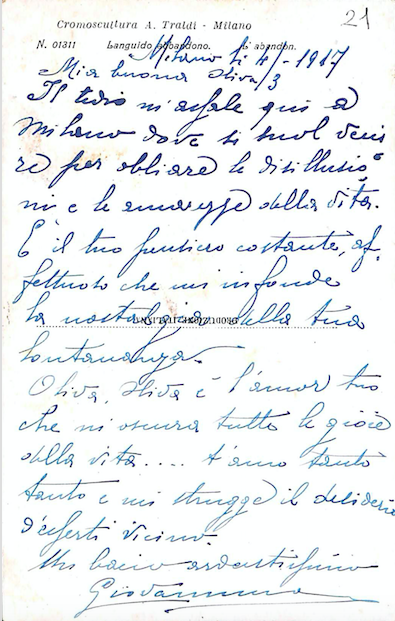 Cromoscultura A. Traldi - Milano
21
N. 01311 Languido abbandono. L'abandon.
Milano li 4/3-1917
Mia buona Oliva
Il tedio m'assale qui a
Milano dove si vuol veni
re per obliare le disillusio
ni e le amarezze della vita.
È il tuo pensiero costante, af-
fettuoso che mi infonde
la nostalgia della tua
lontananza.
Oliva, Oliva è l'amor tuo
che mi oscura tutte le gioie
della vita.... t'amo tanto
tanto e mi strugge il desiderio
d'esserti vicino.
Un bacio ardentissimo